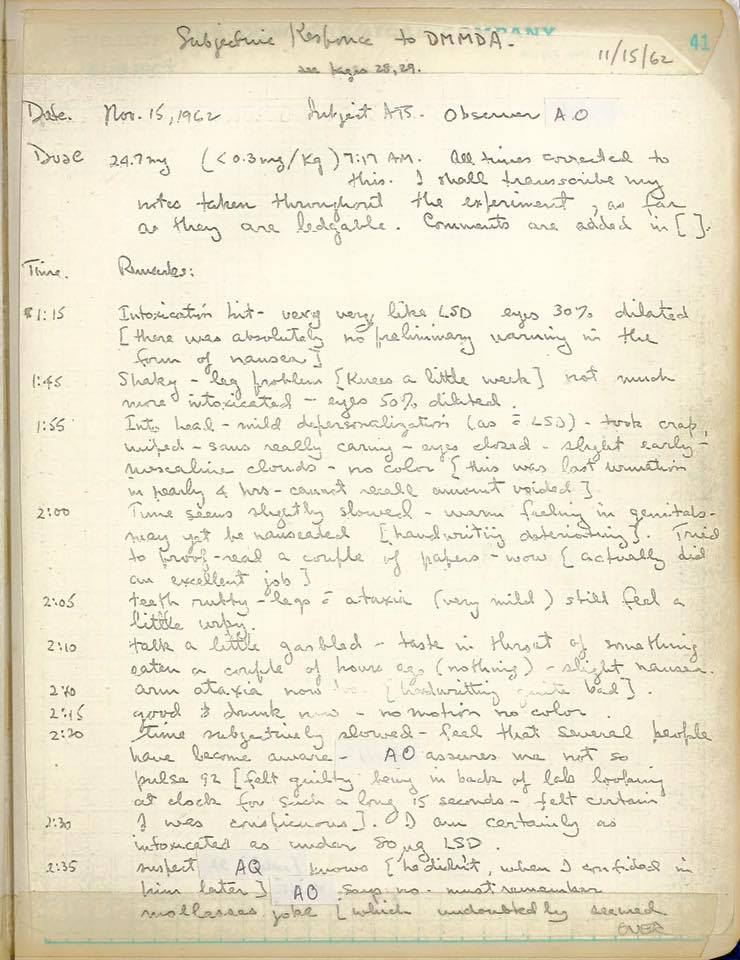 COMPANY
Subjective Response to DMMDA.
11/15/62
41
see pages 28,29.
Date. Nov. 15, 1962 Subject ATS. Observer AO
Dose 24.7 mg (<0.3 mg/Kg) 7:17 AM. All times corrected to
this. I shall transcribe my
notes taken throughout the experiment, as far
as they are ledgable. Comments are added in [ ].
Time. Remarks:
1:15 Intoxication hit - very very like LSD eyes 30% dilated
[there was absolutely no preliminary warning in the
form of nausea]
1:45 Shaky - leg problem [Knees a little weak] not much
more intoxicated - eyes 50% dilated.
1:55 Into head - mild depersonalization (as c̄ LSD) - took crap,
wiped - sans really caring - eyes closed - slight early-
mescaline clouds - no color [this was last urination
in nearly 4 hrs - cannot recall amount voided]
2:00 Time seems slightly slowed - warm feeling in genitals -
may yet be nauseated [handwriting deteriorating]. Tried
to proof-read a couple of papers - wow [actually did
an excellent job]
2:05 teeth rubby - legs c̄ ataxia (very mild) still feel a
little urpy.
2:10 talk a little garbled - taste in throat of something
eaten a couple of hours ago (nothing) - slight nausea.
arm ataxia now [handwritting quite bad].
good & drunk now - no motion no color.
2:20 time subjectively slowed - feel that several people
have become aware - AO assures me not so
pulse 92 [felt guilty being in back of lab looking
at clock for such a long 15 seconds - felt certain
2:30 I was conspicuous]. I am certainly as
intoxicated as under 80 μg LSD.
2:35 suspect AQ knows [he didn't, when I confided in
him later] AO says no. must remember
mollasses joke [which undoubtedly seemed
OVER